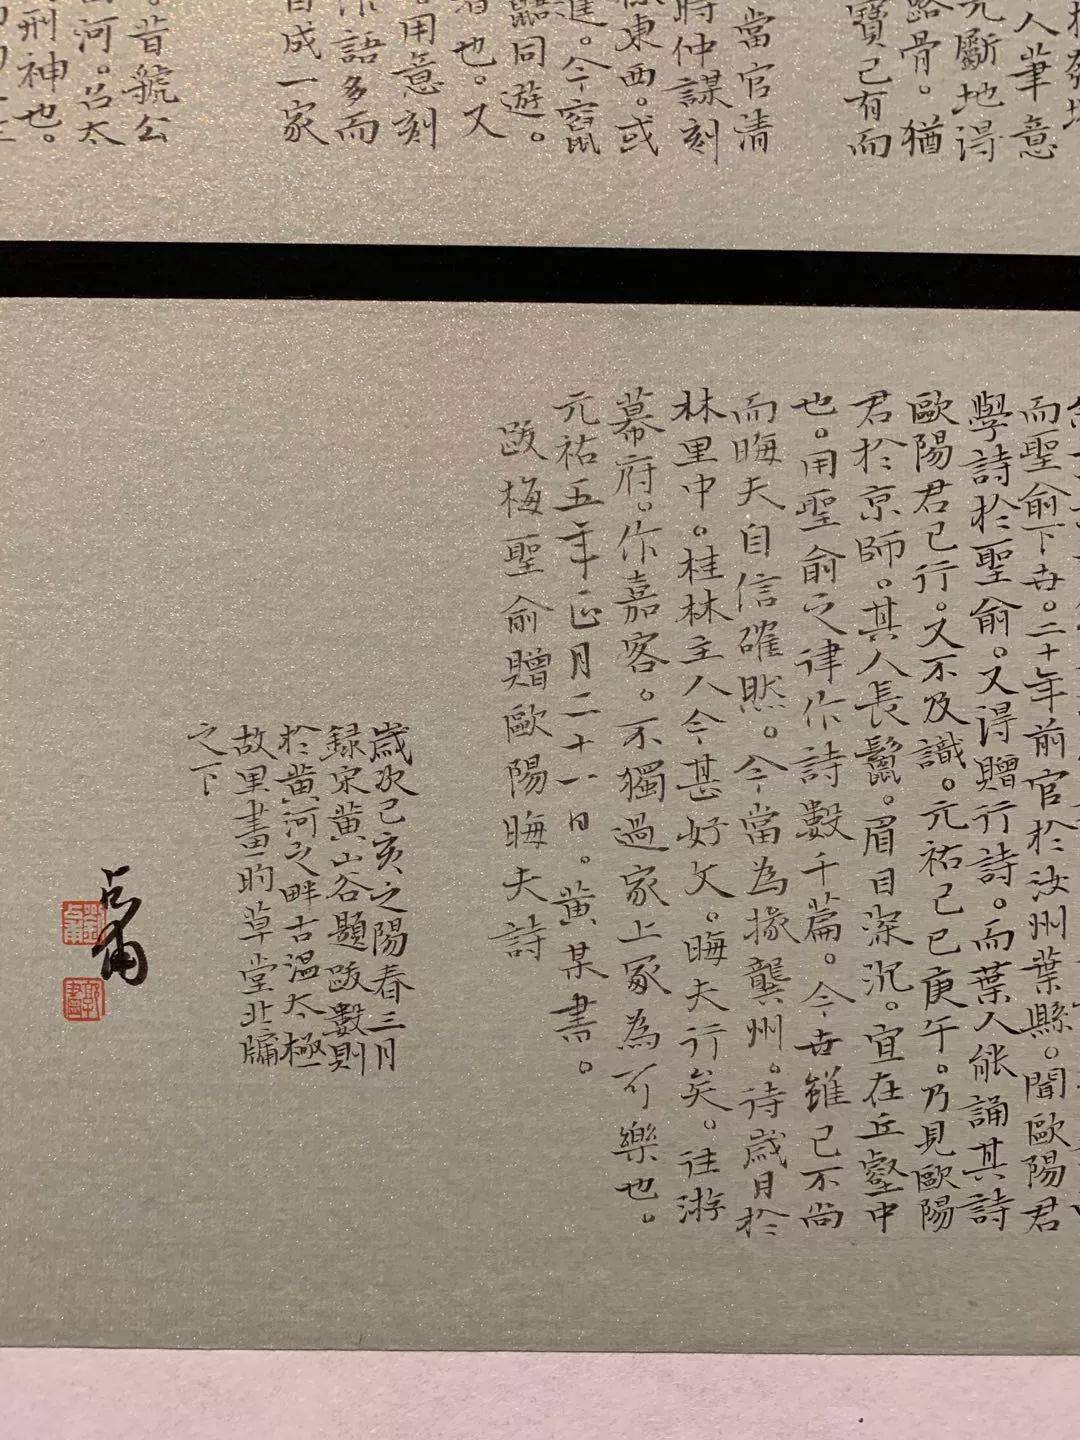 人筆意
元斸地得
露骨。猶
寶已有而
當官清
時仲謀刻
東西。或
進。今竄
同遊。
也。又
用意刻
語多而
自成一家
。昔虢公
河。召太
刑神也。
而聖俞下世。二十年前官於汝州葉縣。聞歐陽君
學詩於聖俞。又得贈行詩。而葉人能誦其詩
歐陽君已行。又不及識。元祐己巳庚午。乃見歐陽
君於京師。其人長鬣。眉目深沉。宜在丘壑中
也。用聖俞之律作詩數千篇。今世雖已不尚
而晦夫自信確然。今當為掾龔州。待歲月於
林里中。桂林主人今甚好文。晦夫行矣。往游
幕府。作嘉客。不獨過家上冢為可樂也。
元祐五年正月二十八日。黃某書。
跋梅聖俞贈歐陽晦夫詩
歲次己亥之陽春三月
録宋黃山谷題跋數則
於黃河之畔古溫太極
故里畫昀草堂北牖
之下